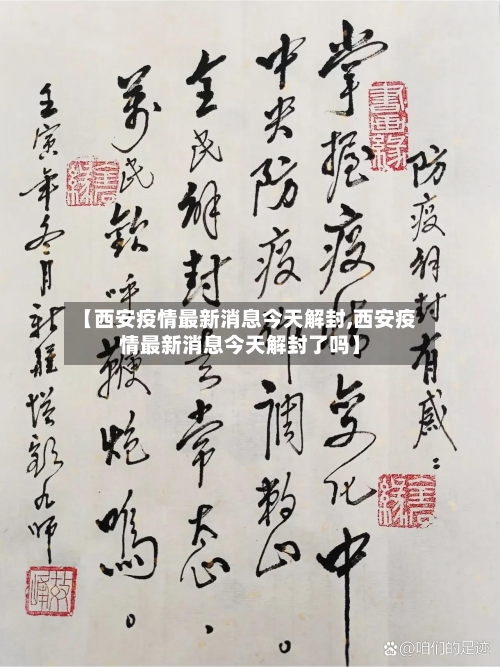 防疫解封有感：
掌握疫变化中
中央防疫调整。
全民解封常态、
萬民欢呼鞭炮鳴。
壬寅年冬月新疆塔額九师
書畫緣
【西安疫情最新消息今天解封,西安疫
情最新消息今天解封了吗】
@咱们的足迹